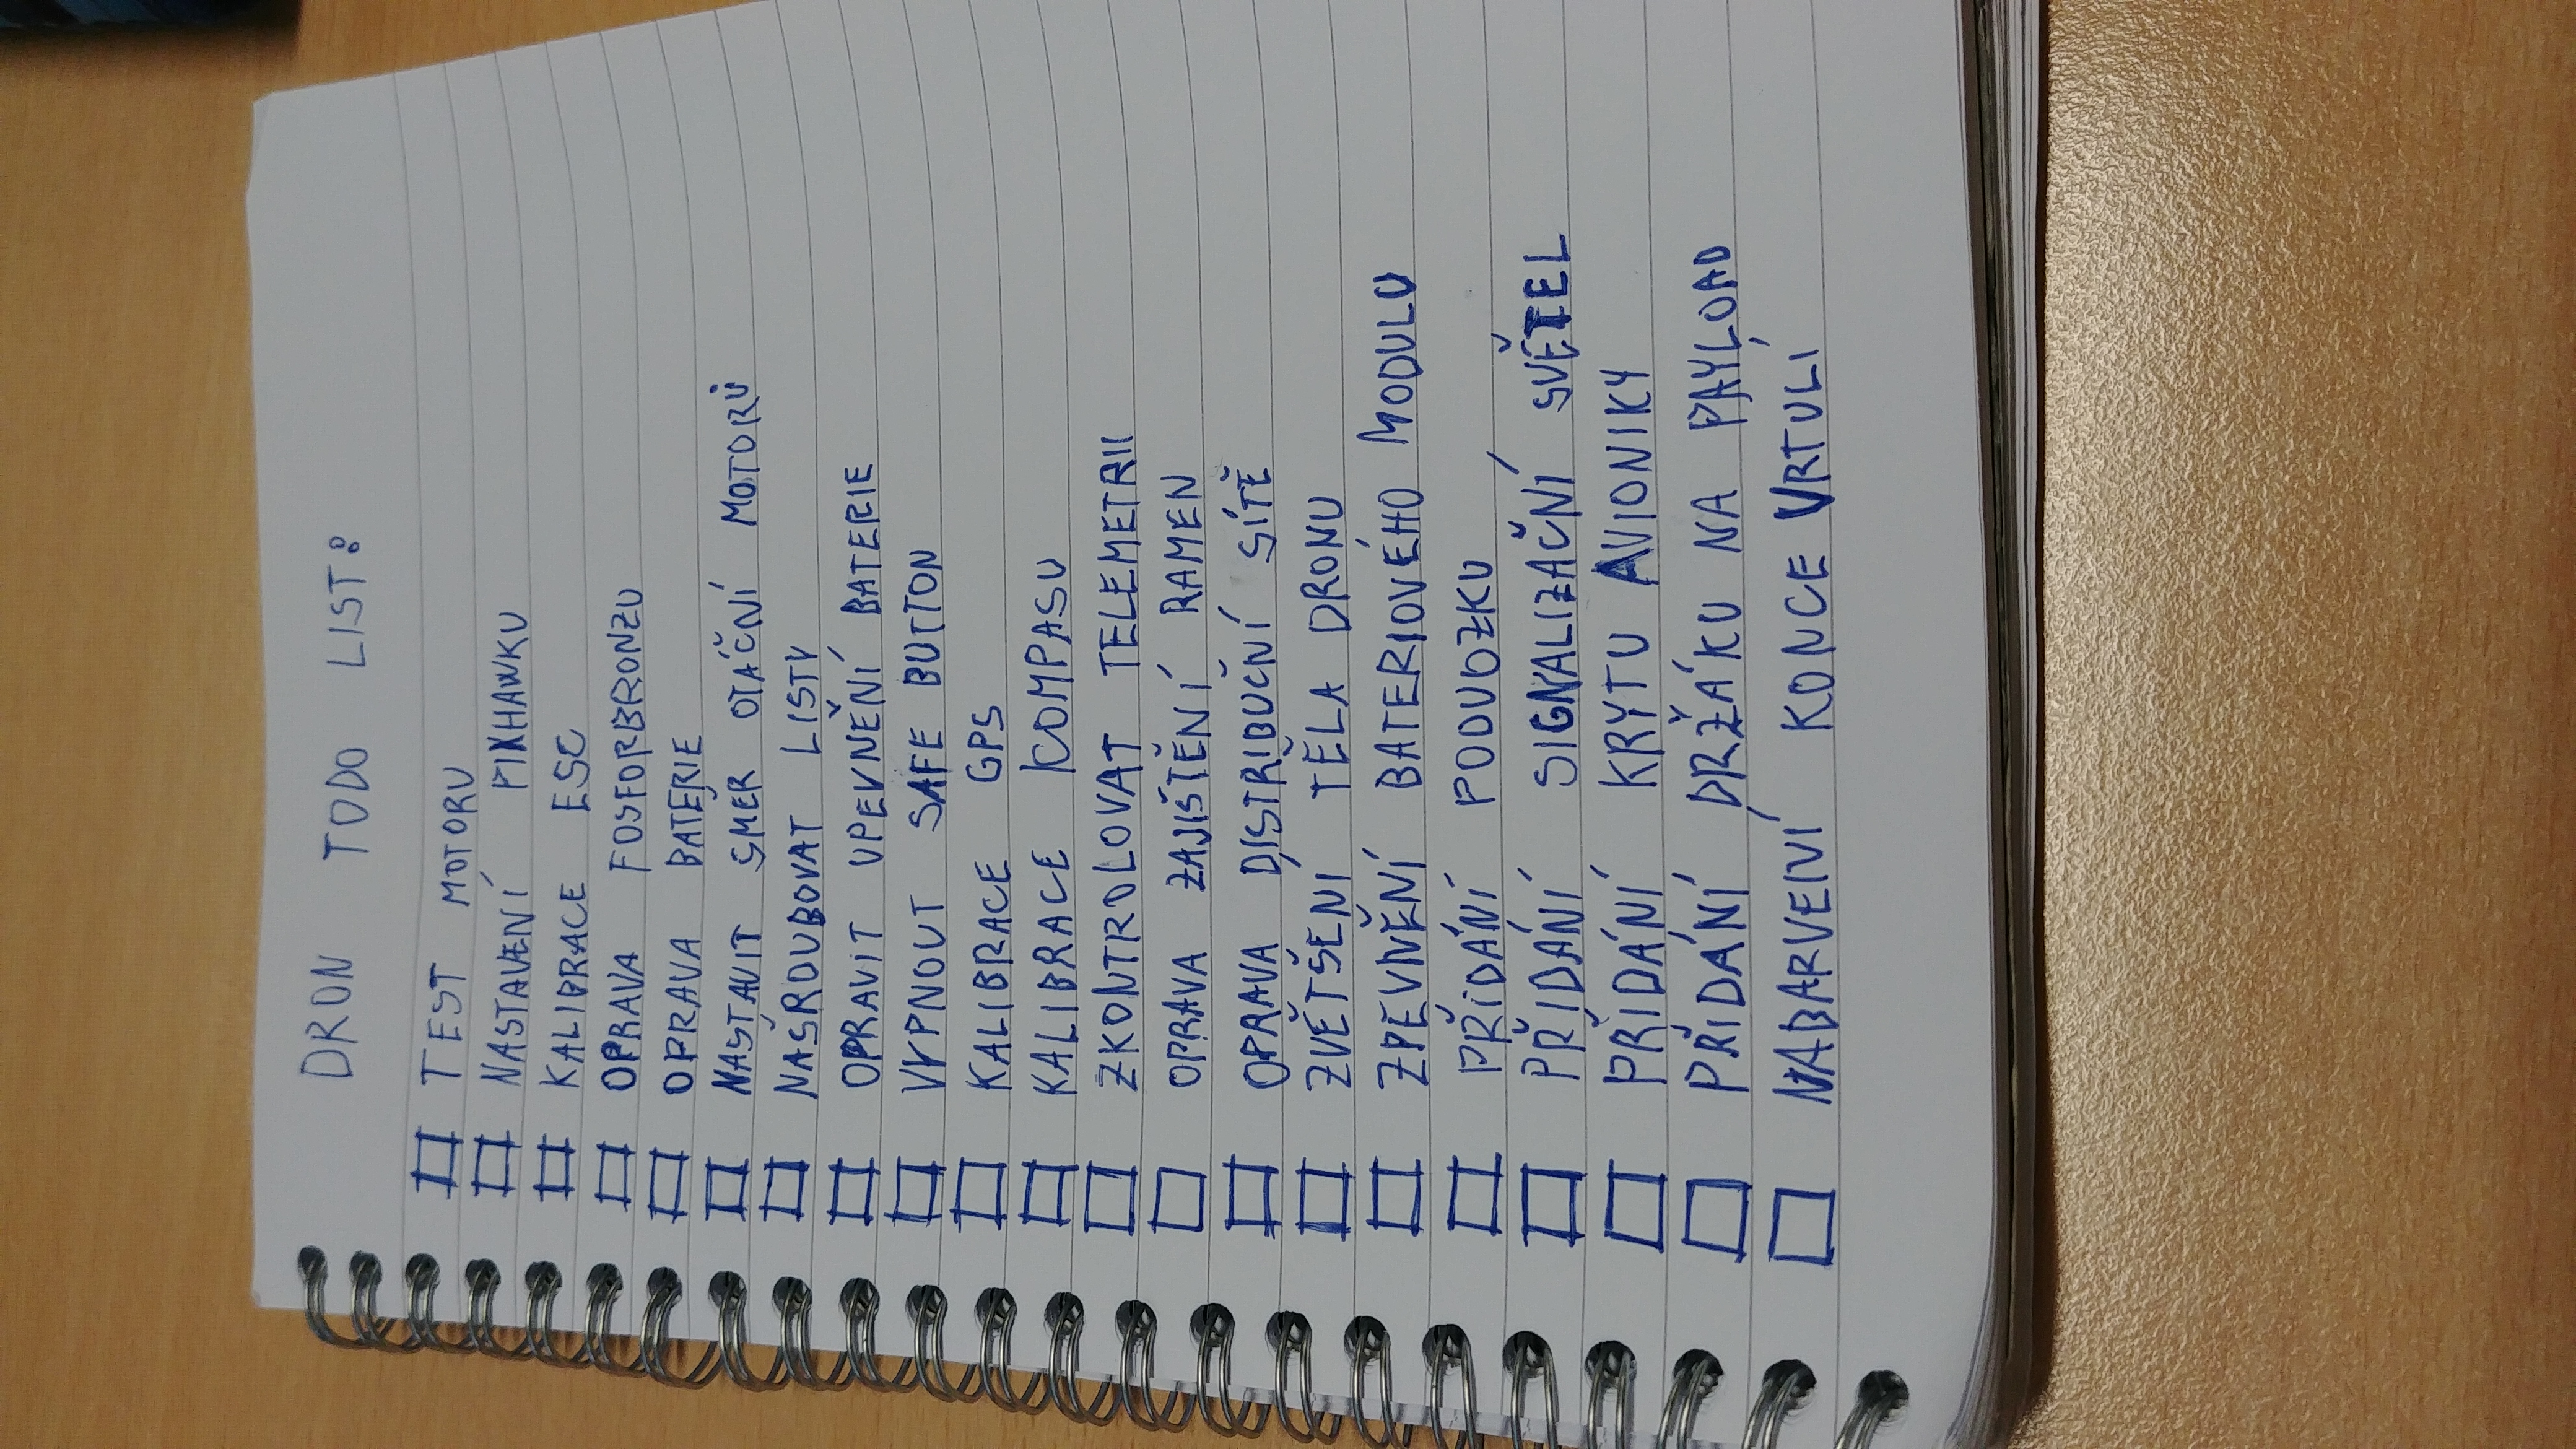 DRON TODO LIST:
TEST MOTORU
NASTAVENÍ PIXHAWKU
KALIBRACE ESC
OPRAVA FOSFORBRONZU
OPRAVA BATERIE
NASTAVIT SMĚR OTÁČNÍ MOTORŮ
NAŠROUBOVAT LISTY
OPRAVIT UPEVNĚNÍ BATERIE
VYPNOUT SAFE BUTTON
KALIBRACE GPS
KALIBRACE KOMPASU
ZKONTROLOVAT TELEMETRII
OPRAVA ZAJIŠTĚNÍ RAMEN
OPRAVA DISTRIBUČNÍ SÍTĚ
ZVĚTŠENÍ TĚLA DRONU
ZPEVNĚNÍ BATERIOVÉHO MODULU
PŘIDÁNÍ PODVOZKU
PŘIDÁNÍ SIGNALIZAČNÍ SVĚTEL
PŘIDÁNÍ KRYTU AVIONIKY
PŘIDÁNÍ DRŽÁKU NA PAYLOAD
NABARVENÍ KONCE VRTULÍ